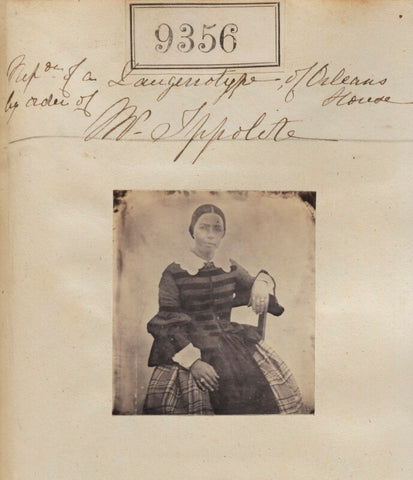 9356
Repdn of a Daugerrotype, of Orleans
by order of House
W. Ippolite